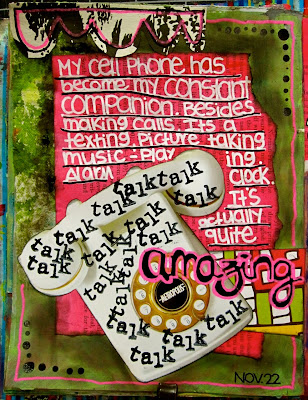 My cell phone has
become my constant
companion. Besides
making calls. It's a
texting, picture taking
music-playing.
Alarm clock.
It's
actually
quite
amazing.
talk talk talk
talk talk
talk talk talk
talk talk
talk talk
talk talk
talk
talk talk
talk talk
talk
NOV. 22